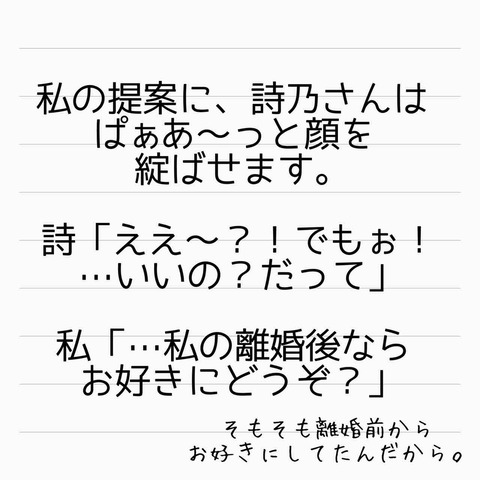 私の提案に、詩乃さんは
ぱぁあ～っと顔を
綻ばせます。
詩「ええ～？！でもぉ！
…いいの？だって」
私「…私の離婚後なら
お好きにどうぞ？」
そもそも離婚前から
お好きにしてたんだから。